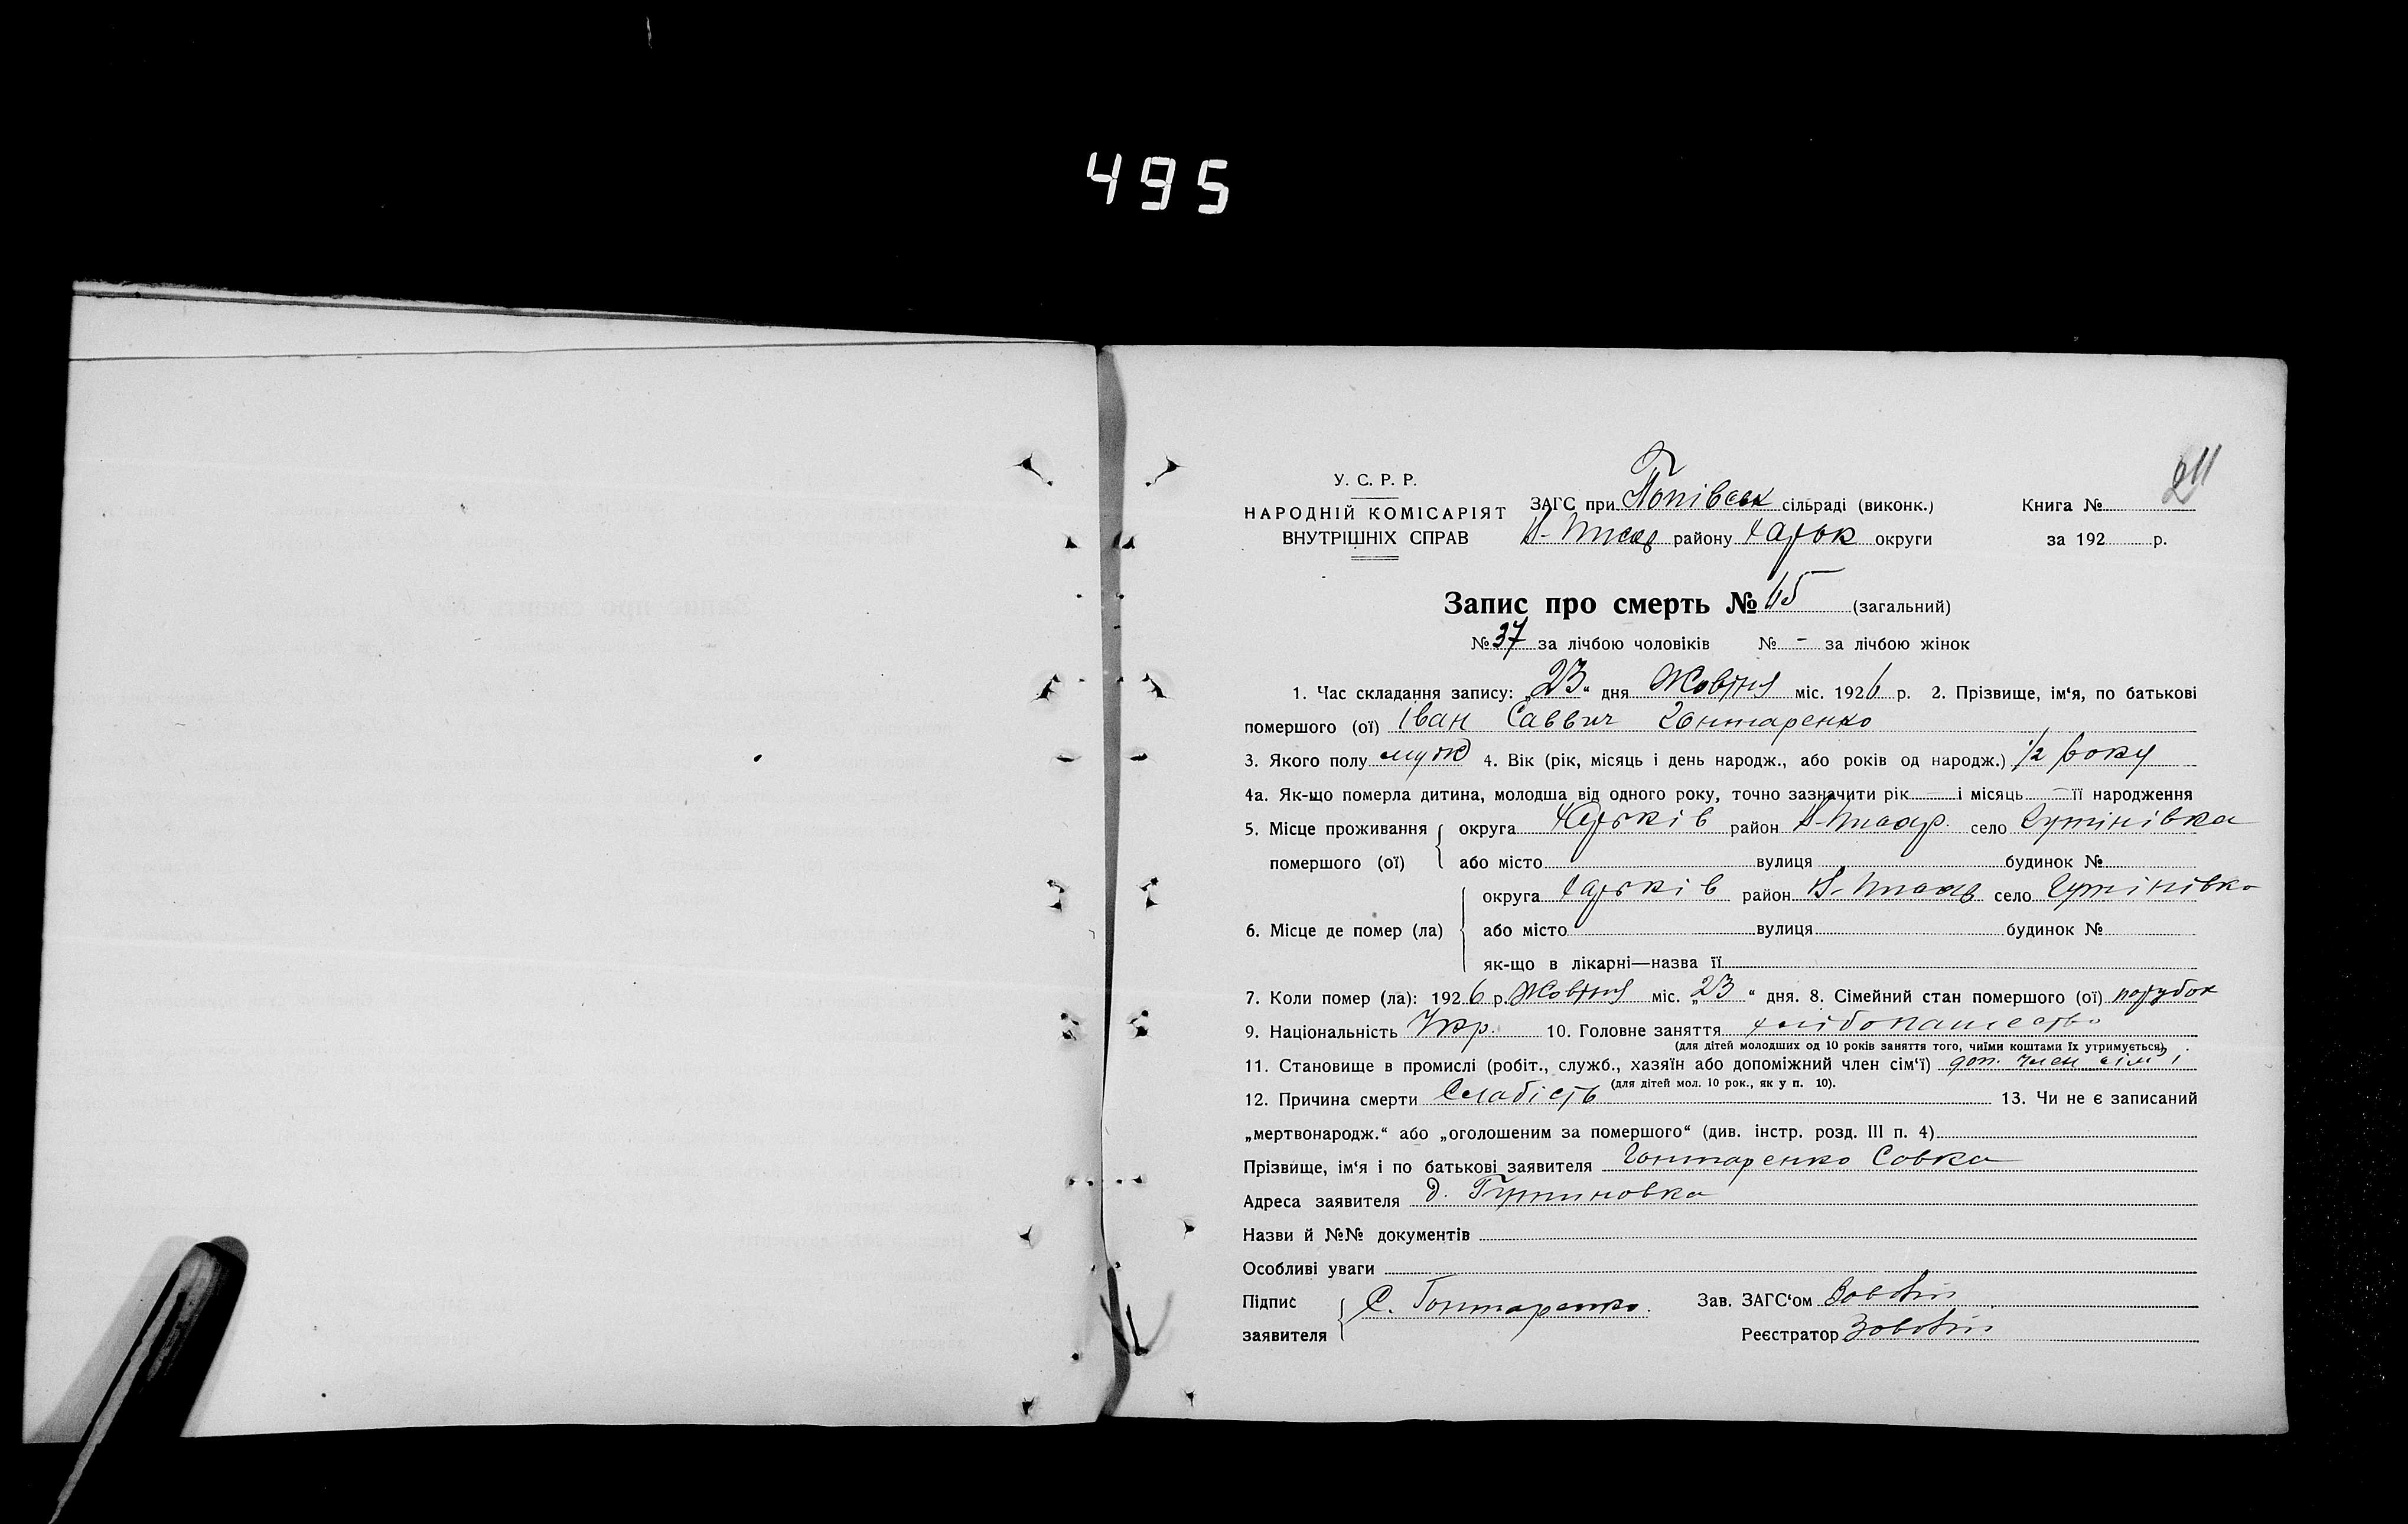 495
211
У. С. Р. Р.
НАРОДНІЙ КОМІСАРІЯТ
ВНУТРІШНІХ СПРАВ
ЗАГС при Попівськ сільраді (виконк.)
району Харьк округи
Книга №
за 192 р.
Запис про смерть № (загальний)
№ 37 за лічбою чоловіків № - за лічбою жінок
1. Час складання запису: „23“ дня Жовтня міс. 1926 р. 2. Прізвище, ім‘я, по батькові
помершого (ої) Іван Саввич Гонтаренко
3. Якого полу муж 4. Вік (рік, місяць і день народж., або років од народж.) 1/2 року
4а. Як-що померла дитина, молодша від одного року, точно зазначити рік — і місяць — її народження
5. Місце проживання помершого (ої) округа Харьків район село Гутінівка
або місто вулиця будинок №
6. Місце де помер (ла) округа Харьків район село Гутінівка
або місто вулиця будинок №
як-що в лікарні—назва її
7. Коли помер (ла): 1926 р. Жовтня міс. „23“ дня. 8. Сімейний стан помершого (ої) парубок
9. Національність Укр. 10. Головне заняття хлібопашество
(для дітей молодших од 10 років заняття того, чиїми коштами їх утримується)
11. Становище в промислі (робіт., служб., хазяїн або допоміжний член сім‘ї) доп. член сім'ї
(для дітей мол. 10 рок., як у п. 10).
12. Причина смерти Слабість 13. Чи не є записаний
„мертвонародж.“ або „оголошеним за помершого“ (див. інстр. розд. III п. 4)
Прізвище, ім‘я і по батькові заявителя Гонтаренко Савка
Адреса заявителя д. Гутиновка
Назви й №№ документів
Особливі уваги
Підпис заявителя С. Гонтаренко.
Зав. ЗАГС‘ом
Реєстратор